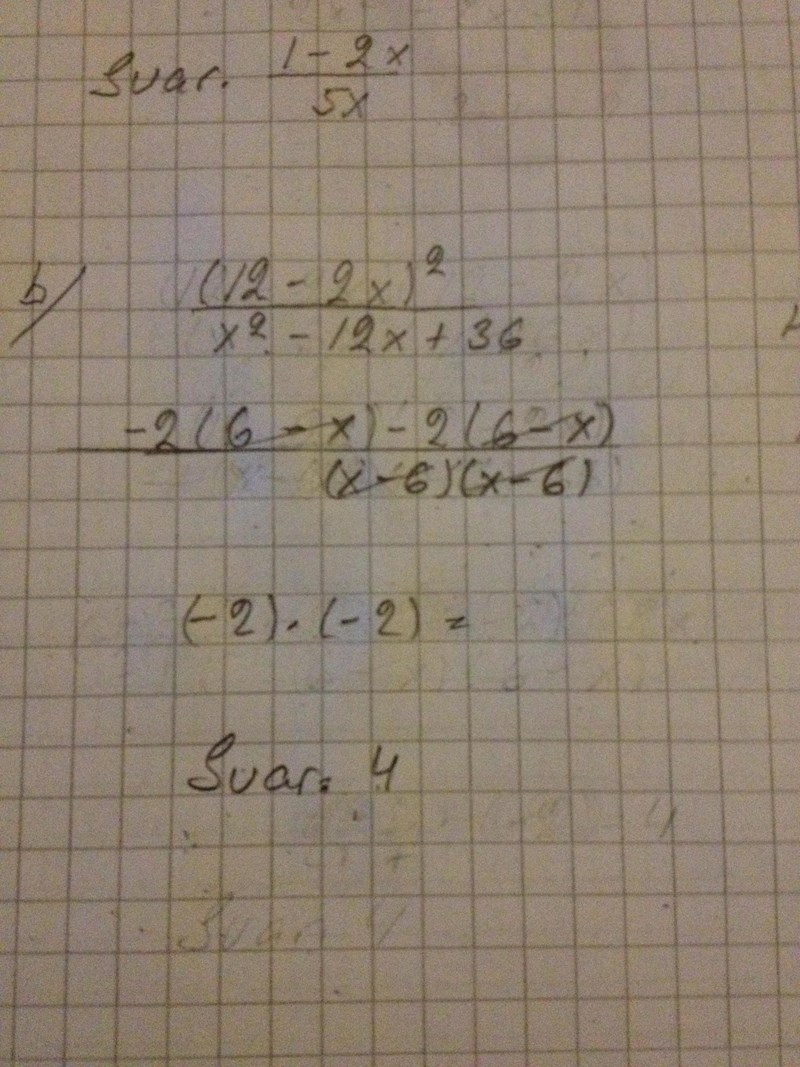 Svar. (1 - 2x)/(5x)
b/ (12 - 2x)² / (x² - 12x + 36)
-2(6 - x) - 2(6 - x) / (x - 6)(x - 6)
(-2) · (-2) =
Svar: 4
Svar: 4